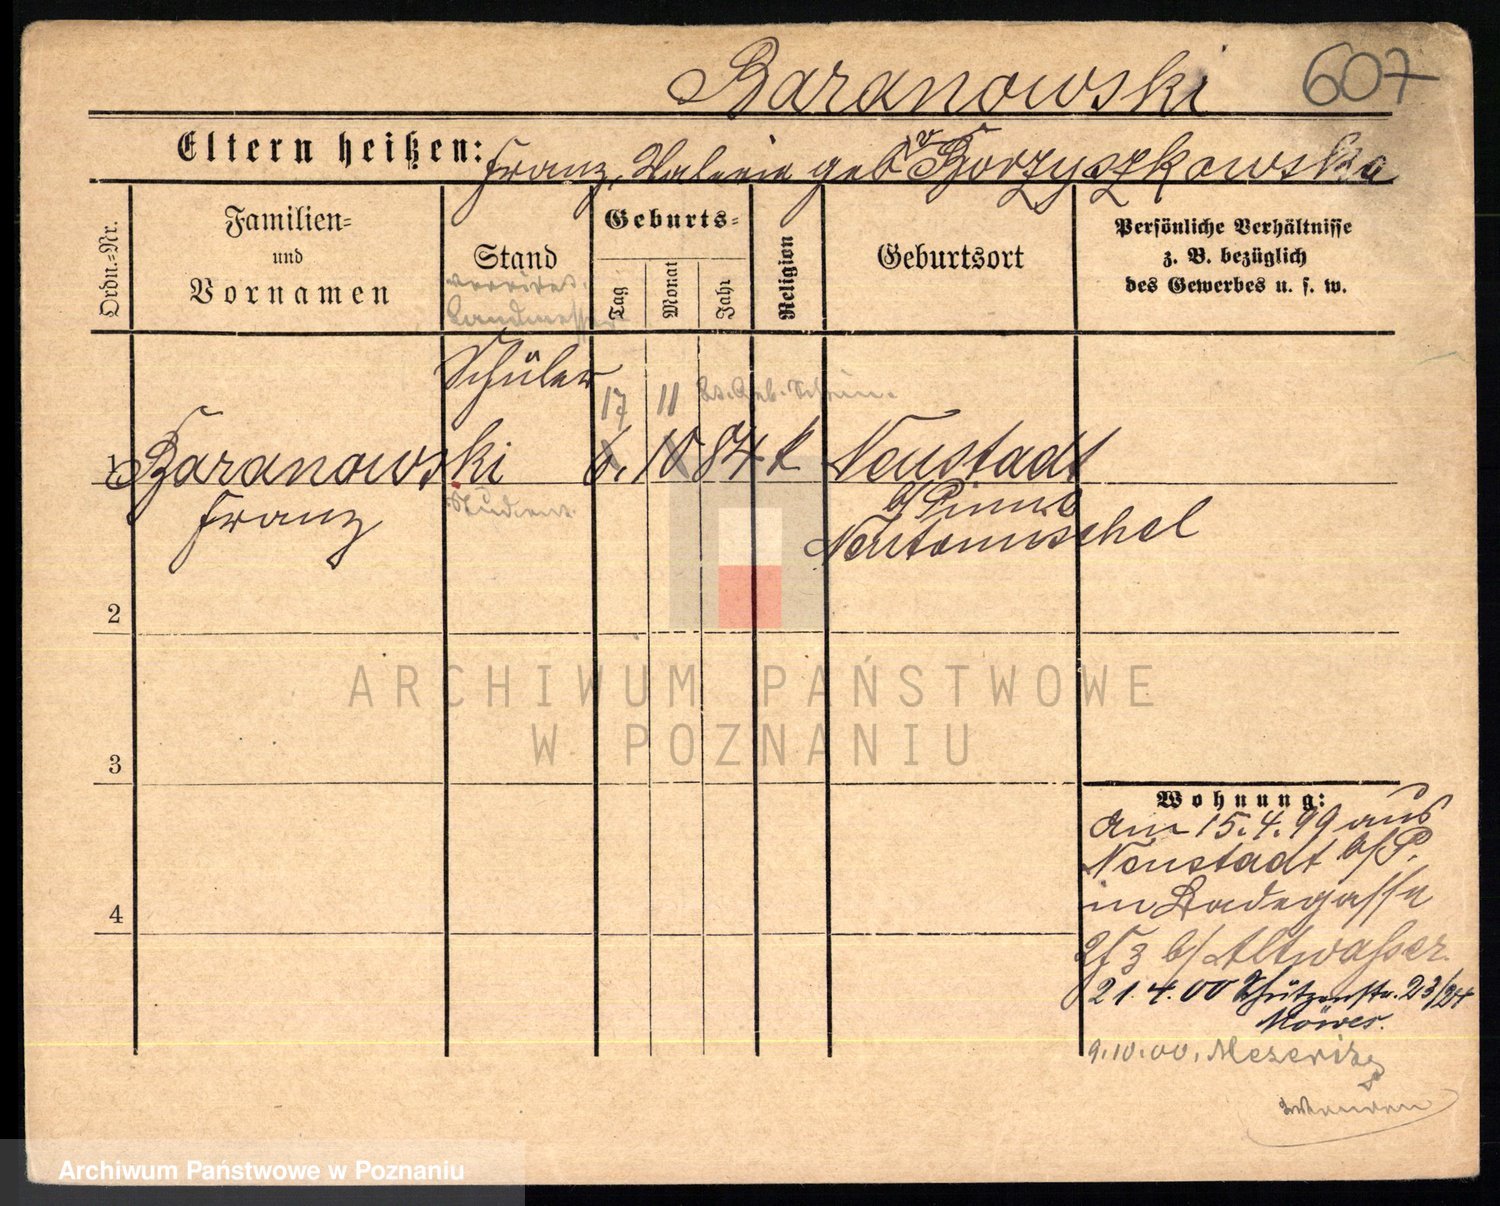 Baranowski 607
Eltern heißen: Franz, Valeria geb v Borzyszkowska
Ordn.-Nr.
Familien- und Vornamen
Stand
Geburts-
Tag
Monat
Jahr
Religion
Geburtsort
Persönliche Verhältnisse
z. B. bezüglich
des Gewerbes u. s. w.
vereides.
Landmesser
Schüler
17 11 Lt. Geb. Schein.
1 Baranowski 6. 10 84 k Neustadt
Franz
Student
b/Pinne
Neutomischel
2
3
4
Wohnung:
Am 15.4.99 aus
Neustadt b/P.
in Badegasse
2/3 b/Altwasser.
21.4.00 Schützenstr. 23/24
Möwes.
9.10.00. Meseritz
Wenden
ARCHIWUM PAŃSTWOWE
W POZNANIU
Archiwum Państwowe w Poznaniu